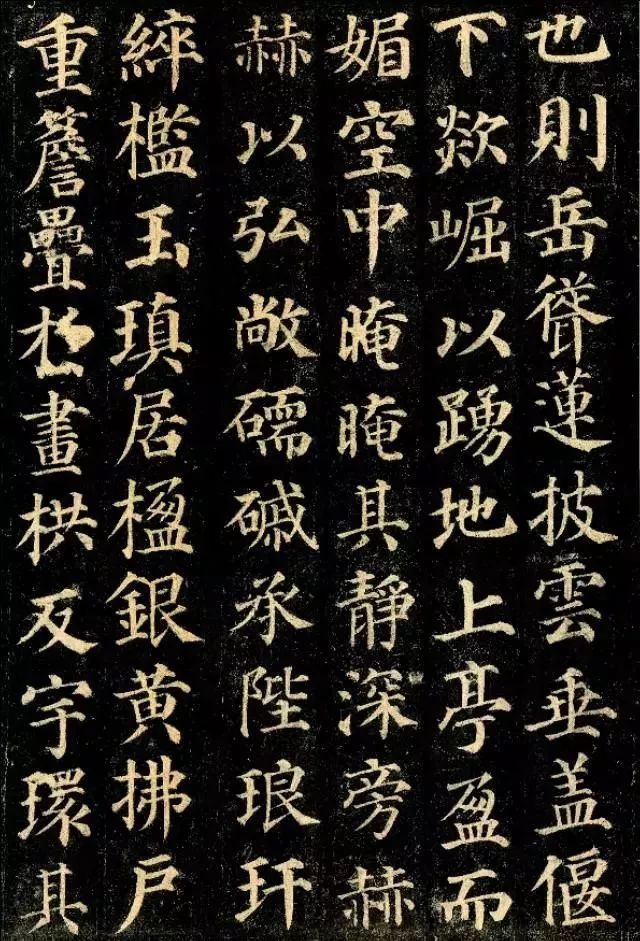 也則岳聳蓮披雲垂盖偃
下欻崛以踴地上亭盈而
媚空中晻晻其靜深旁赫
赫以弘敞礝磩承陛琅玕
綷檻玉瑱居楹銀黃拂戶
重簷疊於畫栱反宇環其